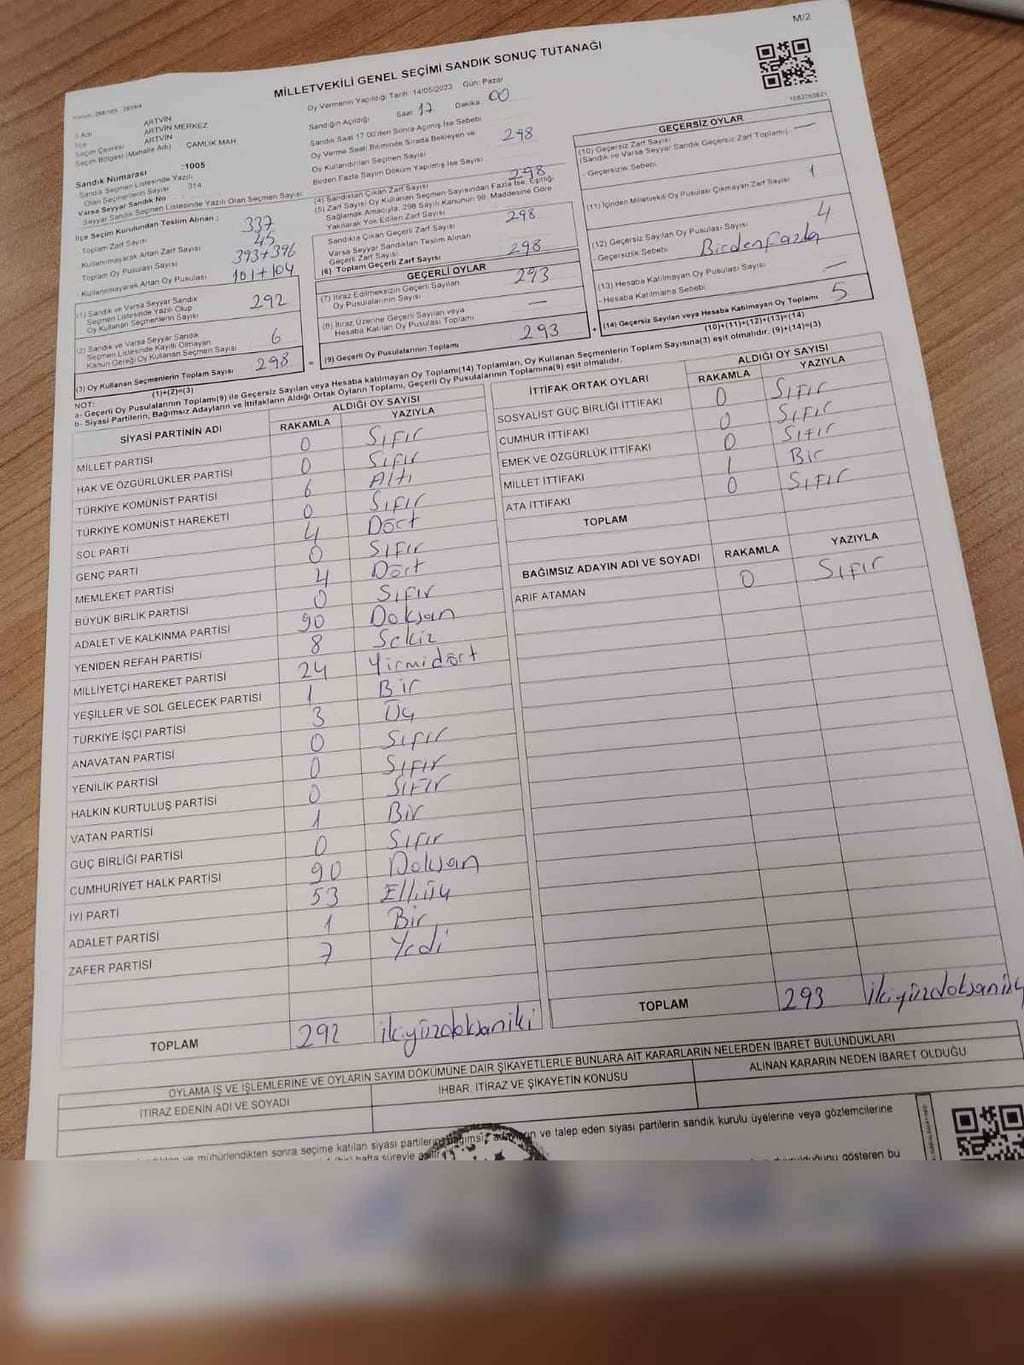 M/2
MİLLETVEKİLİ GENEL SEÇİMİ SANDIK SONUÇ TUTANAĞI
Oy Vermenin Yapıldığı Tarih :14/05/2023 Gün: Pazar
İl Adı ARTVİN
İlçe ARTVİN MERKEZ
Seçim Çevresi ARTVİN
Seçim Bölgesi (Mahalle Adı) ÇAMLIK MAH.
Sandık Numarası :1005
Sandık Seçmen Listesinde Yazılı
Olan Seçmenlerin Sayısı 314
Varsa Seyyar Sandık No
Seyyar Sandık Seçmen Listesinde Yazılı Olan Seçmen Sayısı
İlçe Seçim Kurulundan Teslim Alınan :
Toplam Zarf Sayısı 337
Kullanılmayarak Artan Zarf Sayısı 45
Toplam Oy Pusulası Sayısı 393+396
- Kullanılmayarak Artan Oy Pusulası 101+104
(1) Sandık ve Varsa Seyyar Sandık
Seçmen Listesinde Yazılı Olup
Oy Kullanan Seçmenlerin Sayısı 292
(2) Sandık ve Varsa Seyyar Sandık
Seçmen Listesinde Kayıtlı Olmayan
Kanun Gereği Oy Kullanan Seçmen Sayısı 6
(3) Oy Kullanan Seçmenlerin Toplam Sayısı 298
(1)+(2)=(3)
Sandığın Açıldığı Saat 17 Dakika 00
Sandık Saat 17.00'den Sonra Açılmış İse Sebebi
Oy Verme Saati Bitiminde Sırada Bekleyen ve
Oy Kullandırılan Seçmen Sayısı 298
Birden Fazla Sayım Döküm Yapılmış İse Sayısı
(4) Sandıktan Çıkan Zarf Sayısı 298
(5) Zarf Sayısı Oy Kullanan Seçmen Sayısından Fazla İse, Eşitliği
Sağlamak Amacıyla, 298 Sayılı Kanunun 98. Maddesine Göre
Yakılarak Yok Edilen Zarf Sayısı
Sandıkta Çıkan Geçerli Zarf Sayısı 298
Varsa Seyyar Sandıktan Teslim Alınan
Geçerli Zarf Sayısı
(6) Toplam Geçerli Zarf Sayısı 298
GEÇERLİ OYLAR
(7) İtiraz Edilmeksizin Geçerli Sayılan
Oy Pusulalarının Sayısı 293
(8) İtiraz Üzerine Geçerli Sayılan veya
Hesaba Katılan Oy Pusulası Toplamı —
= (9) Geçerli Oy Pusulalarının Toplamı 293 +
1083763821
GEÇERSİZ OYLAR
(10) Geçersiz Zarf Sayısı
(Sandık ve Varsa Seyyar Sandık Geçersiz Zarf Toplamı) —
- Geçersizlik Sebebi
(11) İçinden Milletvekili Oy Pusulası Çıkmayan Zarf Sayısı 1
(12) Geçersiz Sayılan Oy Pusulası Sayısı 4
- Geçersizlik Sebebi Birden fazla
(13) Hesaba Katılmayan Oy Pusulası Sayısı —
- Hesaba Katılmama Sebebi
(14) Geçersiz Sayılan veya Hesaba Katılmayan Oy Toplamı 5
(10)+(11)+(12)+(13)=(14)
NOT:
a- Geçerli Oy Pusulalarının Toplamı(9) ile Geçersiz Sayılan veya Hesaba katılmayan Oy Toplamı(14) Toplamları, Oy Kullanan Seçmenlerin Toplam Sayısına(3) eşit olmalıdır. (9)+(14)=(3)
b- Siyasi Partilerin, Bağımsız Adayların ve İttifakların Aldığı Ortak Oyların Toplamı, Geçerli Oy Pusulalarının Toplamına(9) eşit olmalıdır.
SİYASİ PARTİNİN ADI ALDIĞI OY SAYISI
RAKAMLA YAZIYLA
MİLLET PARTİSİ 0 Sıfır
HAK VE ÖZGÜRLÜKLER PARTİSİ 0 Sıfır
TÜRKİYE KOMÜNİST PARTİSİ 6 Altı
TÜRKİYE KOMÜNİST HAREKETİ 0 Sıfır
SOL PARTİ 4 Dört
GENÇ PARTİ 0 Sıfır
MEMLEKET PARTİSİ 4 Dört
BÜYÜK BİRLİK PARTİSİ 0 Sıfır
ADALET VE KALKINMA PARTİSİ 90 Doksan
YENİDEN REFAH PARTİSİ 8 Sekiz
MİLLİYETÇİ HAREKET PARTİSİ 24 Yirmidört
YEŞİLLER VE SOL GELECEK PARTİSİ 1 Bir
TÜRKİYE İŞÇİ PARTİSİ 3 Üç
ANAVATAN PARTİSİ 0 Sıfır
YENİLİK PARTİSİ 0 Sıfır
HALKIN KURTULUŞ PARTİSİ 0 Sıfır
VATAN PARTİSİ 1 Bir
GÜÇ BİRLİĞİ PARTİSİ 0 Sıfır
CUMHURİYET HALK PARTİSİ 90 Doksan
İYİ PARTİ 53 Elliüç
ADALET PARTİSİ 1 Bir
ZAFER PARTİSİ 7 Yedi
TOPLAM 292 ikiyüzdoksaniki
İTTİFAK ORTAK OYLARI ALDIĞI OY SAYISI
RAKAMLA YAZIYLA
SOSYALİST GÜÇ BİRLİĞİ İTTİFAKI 0 Sıfır
CUMHUR İTTİFAKI 0 Sıfır
EMEK VE ÖZGÜRLÜK İTTİFAKI 0 Sıfır
MİLLET İTTİFAKI 1 Bir
ATA İTTİFAKI 0 Sıfır
TOPLAM
BAĞIMSIZ ADAYIN ADI VE SOYADI RAKAMLA YAZIYLA
ARİF ATAMAN 0 Sıfır
TOPLAM 293 ikiyüzdoksanüç
OYLAMA İŞ VE İŞLEMLERİNE VE OYLARIN SAYIM DÖKÜMÜNE DAİR ŞİKAYETLERLE BUNLARA AİT KARARLARIN NELERDEN İBARET BULUNDUKLARI
İTİRAZ EDENİN ADI VE SOYADI İHBAR, İTİRAZ VE ŞİKAYETİN KONUSU ALINAN KARARIN NEDEN İBARET OLDUĞU
ve mühürlendikten sonra seçime katılan siyasi partilerin, ve talep eden siyasi partilerin sandık kurulu üyelerine veya gözlemcilerine
hafta süreyle gösteren bu